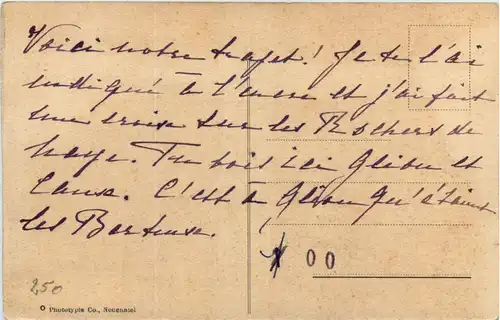 Voici notre trajet! Je te l'ai
indiqué à l'encre et j'ai fait
une croix sur les Rochers de
Naye. Tu vois ici Glion et
Caux. C'est à Glion qu'étaient
les
* 00
250
Phototypie Co., Neuchatel